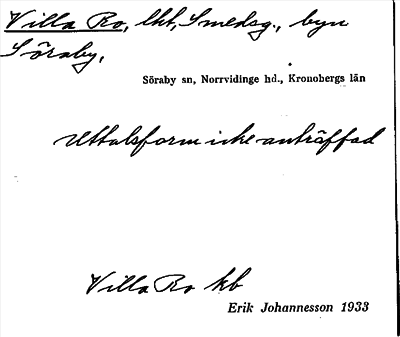 Villa Ro, lht, Smedsg., byn
Söraby,
Söraby sn, Norrvidinge hd., Kronobergs län
Uttalsform icke anträffad
Villa Ro kb
Erik Johannesson 1933